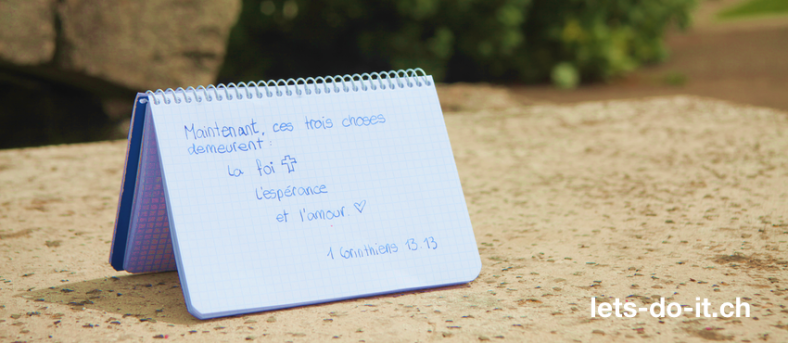 Maintenant, ces trois choses
demeurent :
La foi
L'espérance
et l'amour.
1 Corinthiens 13.13
lets-do-it.ch